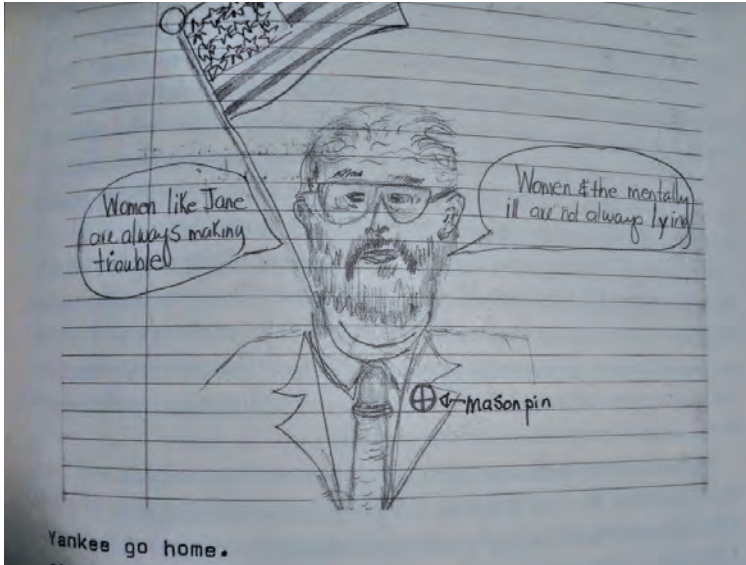 Women like Jane
are always making
trouble
Women & the mentally
ill are not always lying
mason pin
Yankee go home.